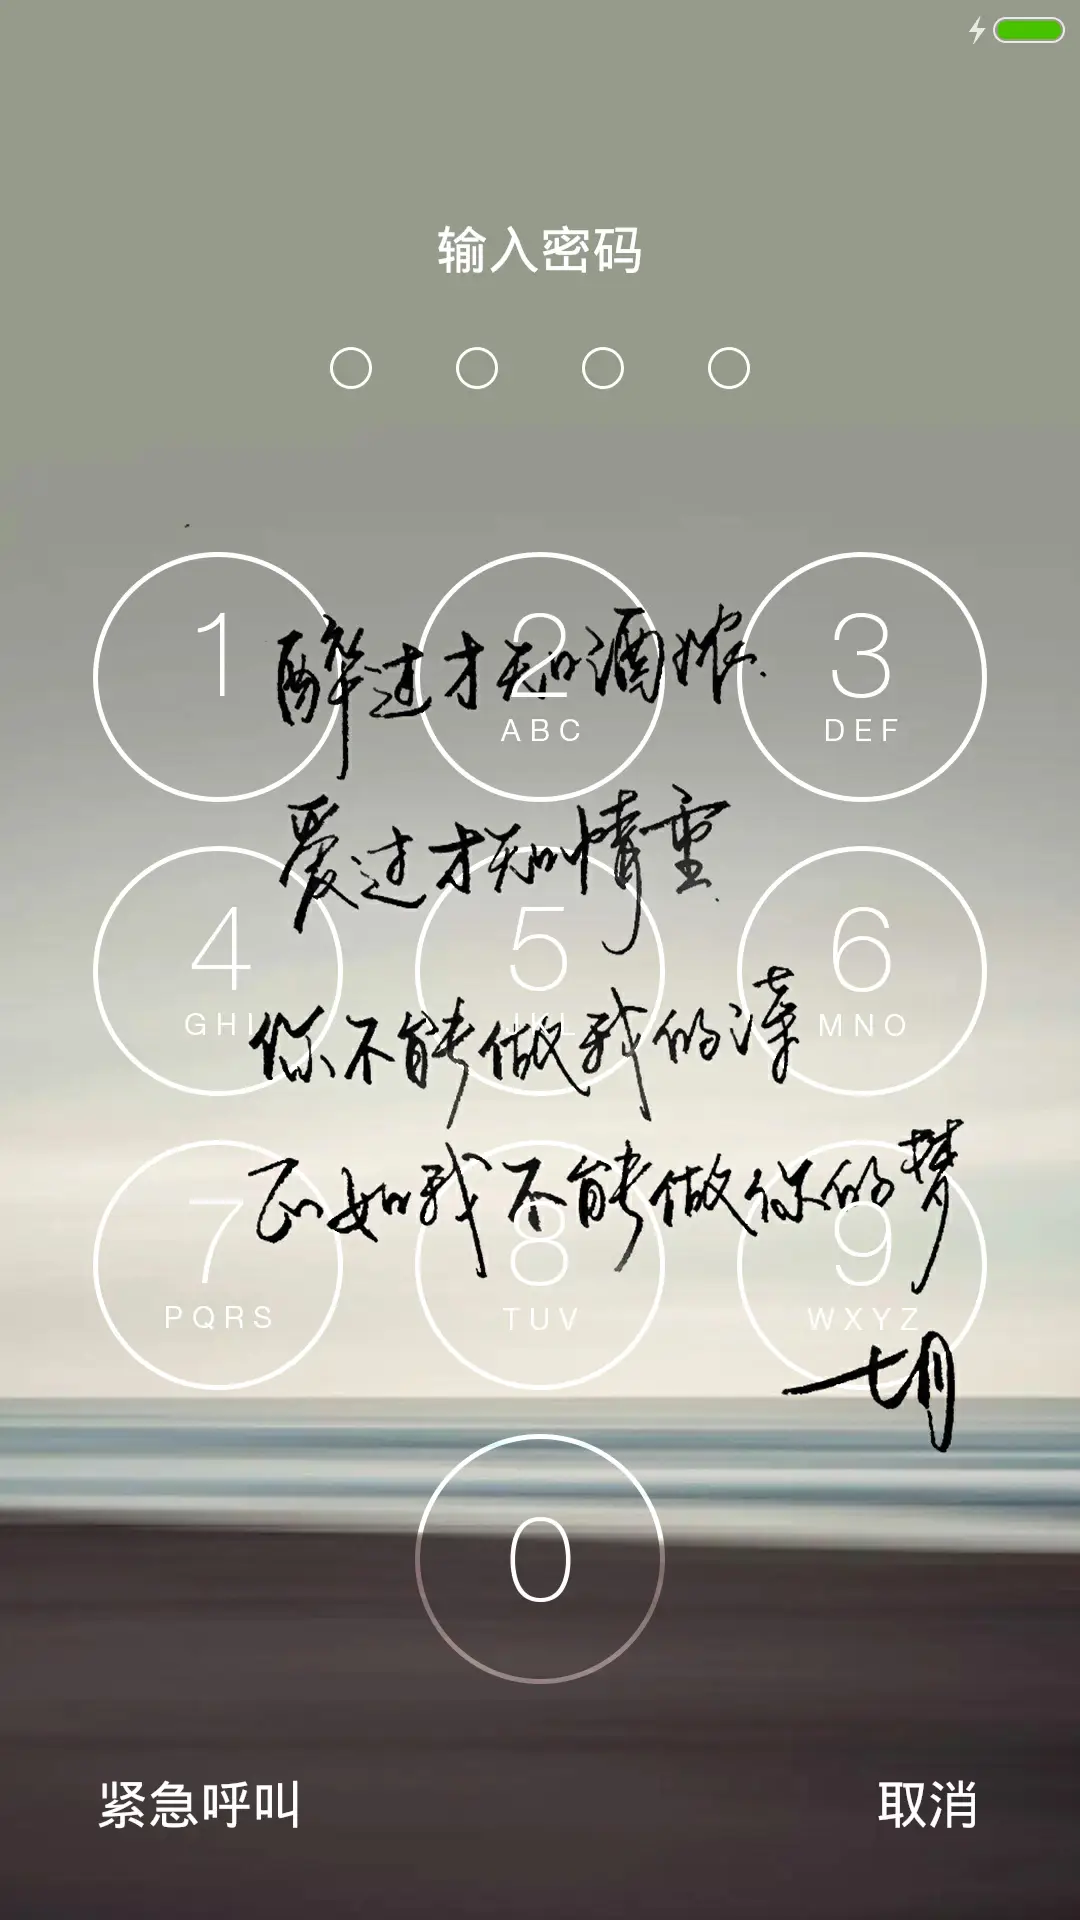 输入密码
1
2
ABC
3
DEF
4
GHI
5
JKL
6
MNO
7
PQRS
8
TUV
9
WXYZ
0
醉过才知酒浓
爱过才知情重
你不能做我的诗
正如我不能做你的梦
七月
紧急呼叫
取消